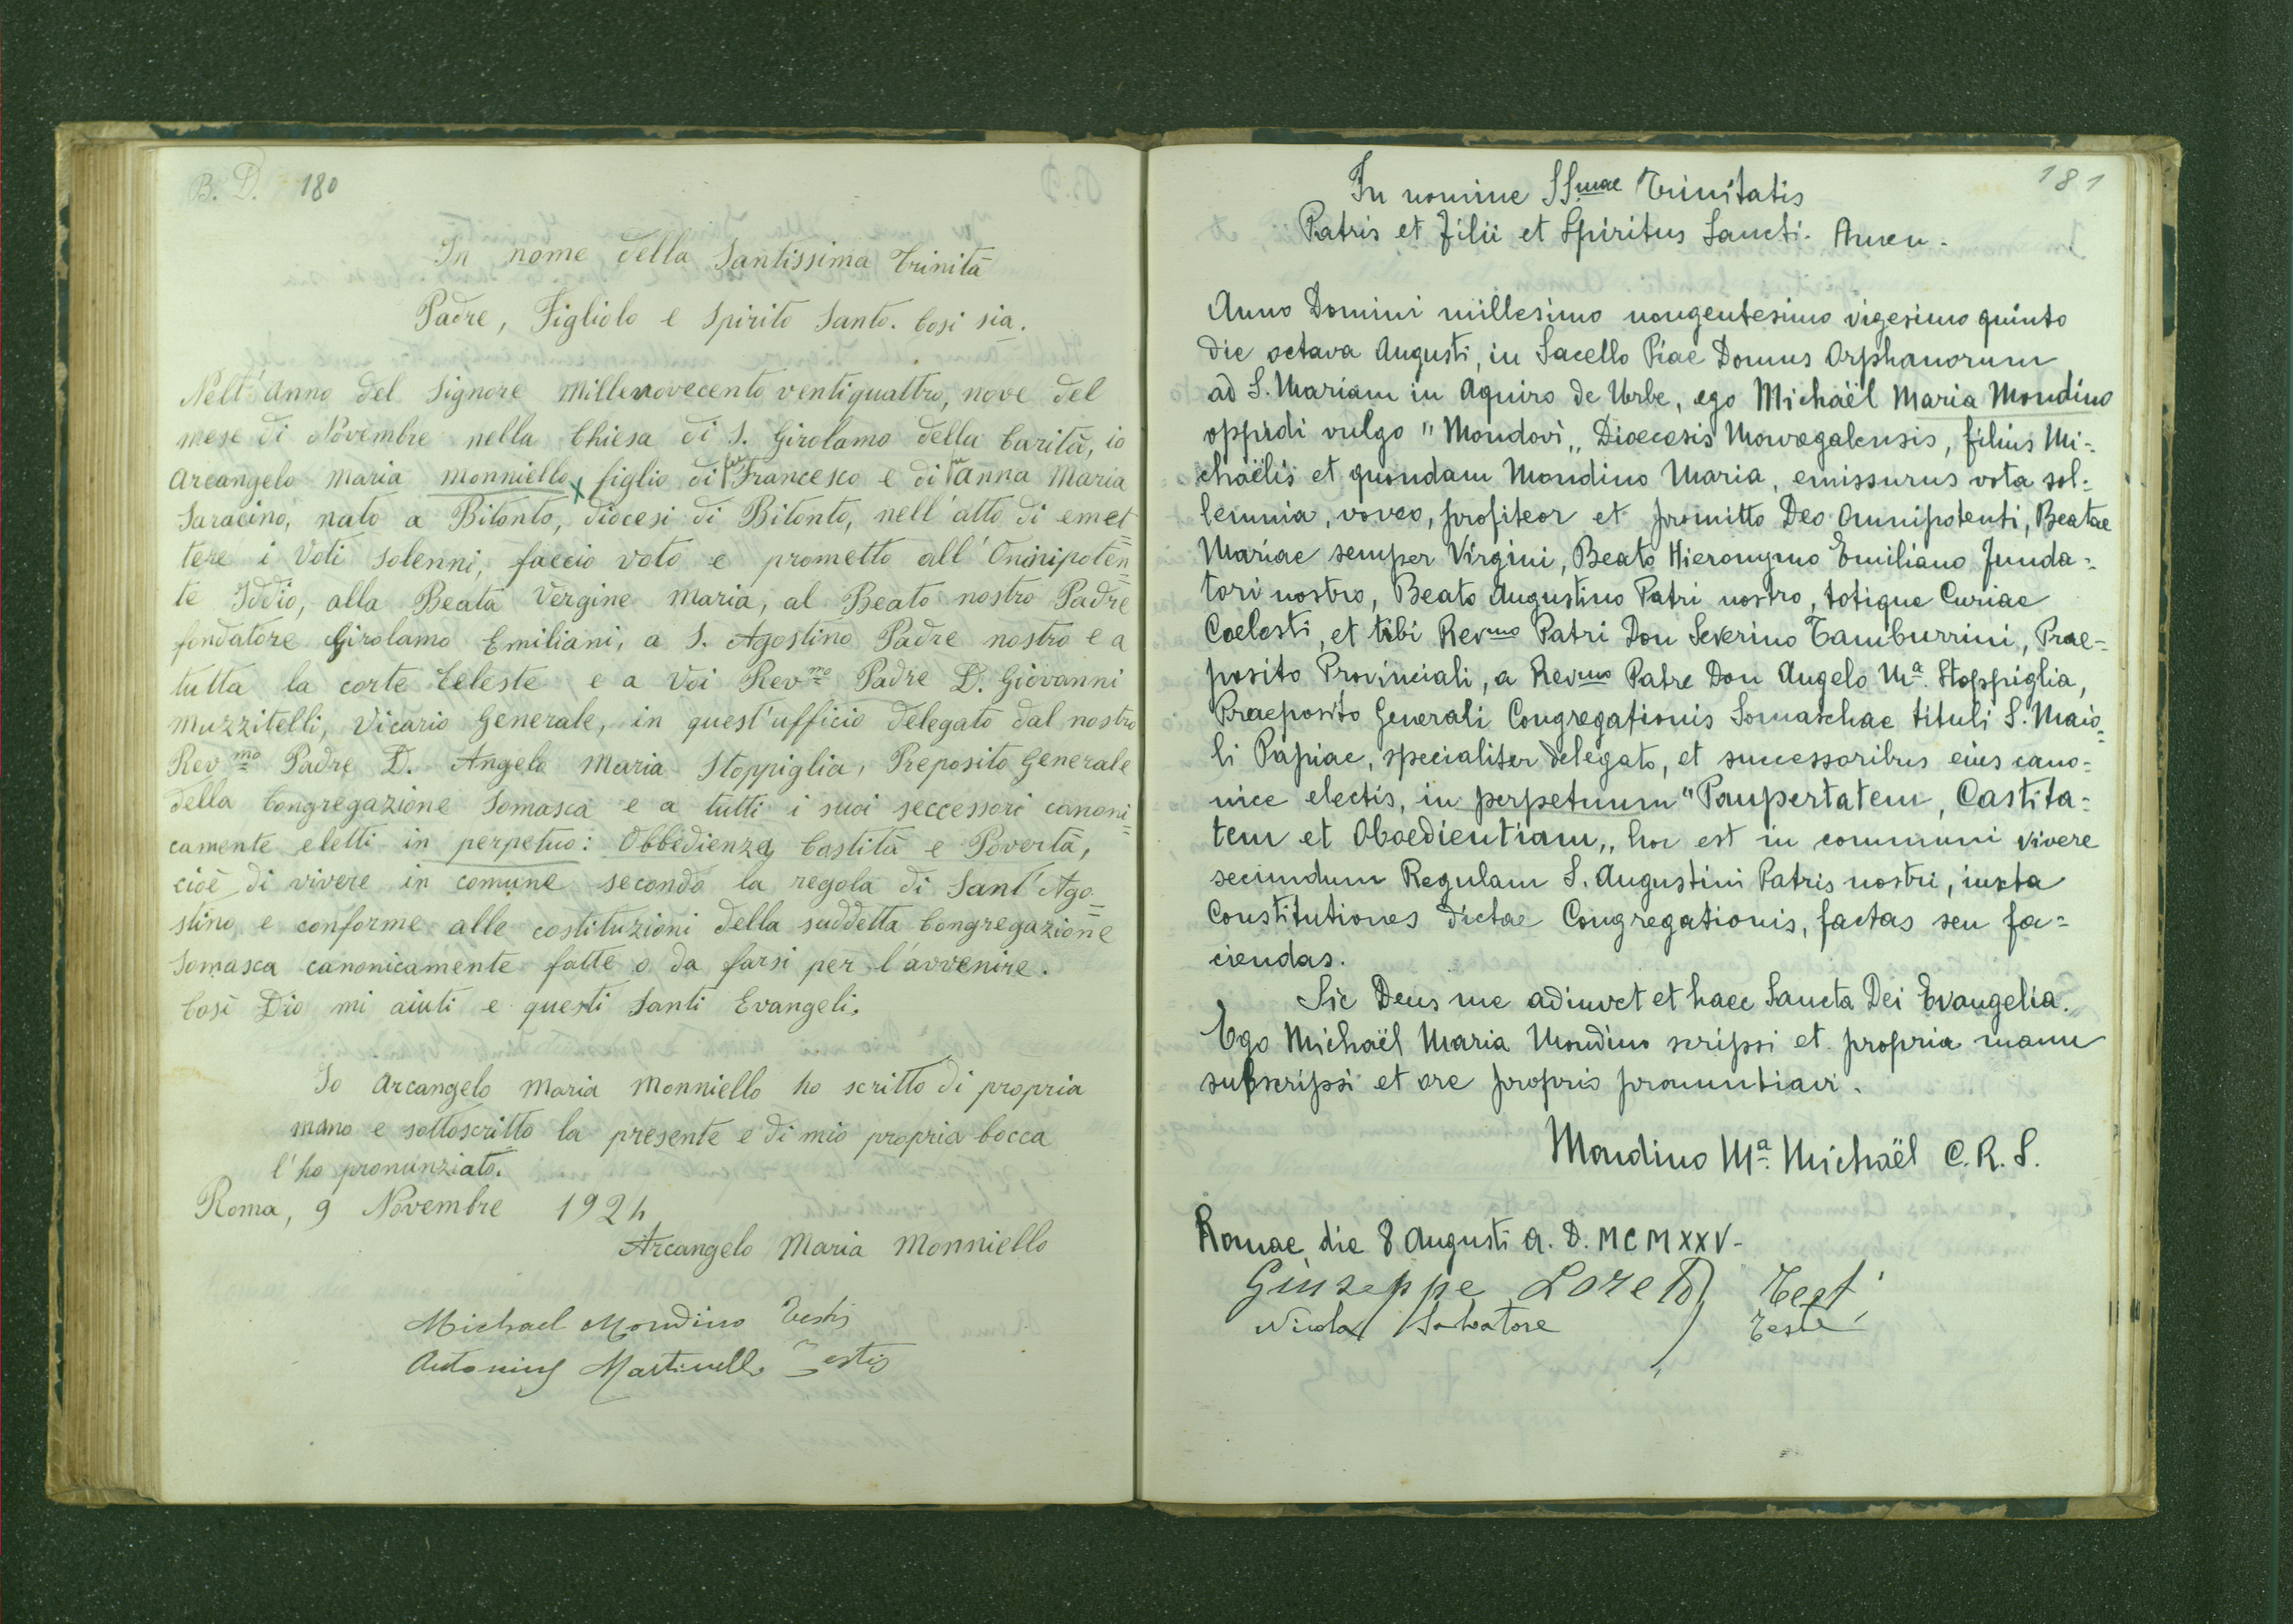 B. D. 180
In nome della Santissima Trinità
Padre, Figliolo e Spirito Santo. Così sia.
Nell'anno del Signore millenovecento ventiquattro, nove del
mese di Novembre nella Chiesa di S. Girolamo della Carità, io
Arcangelo Maria Monniello x figlio di fu Francesco e di fu Anna Maria
Saracino, nato a Bitonto, diocesi di Bitonto, nell'atto di emet
tere i Voti Solenni, faccio voto e prometto all'Onnipoten=
te Iddio, alla Beata Vergine Maria, al Beato nostro Padre
fondatore Girolamo Emiliani, a S. Agostino Padre nostro e a
tutta la corte Celeste e a Voi Revmo Padre D. Giovanni
Muzzitelli, Vicario Generale, in quest'ufficio delegato dal nostro
Revmo Padre D. Angelo Maria Stoppiglia, Preposito Generale
della Congregazione Somasca e a tutti i suoi seccessori canoni=
camente eletti in perpetuo: Obbedienza, Castità e Povertà,
cioè di vivere in comune secondo la regola di Sant'Ago=
stino e conforme alle costituzioni della suddetta Congregazione
Somasca canonicamente fatte o da farsi per l'avvenire.
Così Dio mi aiuti e questi Santi Evangeli.
Io Arcangelo Maria Monniello ho scritto di propria
mano e sottoscritto la presente e di mio propria bocca
l'ho pronunziato.
Roma, 9 Novembre 1924
Arcangelo Maria Monniello
Michael Mondino Testis
Antonius Martinelli Testis
181
In nomine SS.mae Trinitatis
Patris et Filii et Spiritus Sancti. Amen.
Anno Domini millesimo nongentesimo vigesimo quinto
die octava Augusti, in Sacello Piae Domus Orphanorum
ad S. Mariam in Aquiro de Urbe, ego Michaël Maria Mondino
oppidi vulgo "Mondovì„ Dioecesis Movregalensis, filius Mi=
chaëlis et quondam Mondino Maria, emissurus vota sol=
lemnia, voveo, profiteor et promitto Deo Omnipotenti, Beatae
Mariae semper Virgini, Beato Hieronymo Emiliano Funda=
tori nostro, Beato Augustino Patri nostro, totique Curiae
Coelesti, et tibi Revmo Patri Don Severino Tamburrini, Prae=
posito Provinciali, a Revmo Patre Don Angelo Ma. Stoppiglia,
Praeposito Generali Congregationis Somaschae tituli S. Maio=
li Papiae, specialiter delegato, et successoribus eius cano=
nice electis, in perpetuum "Paupertatem, Castita=
tem et Oboedientiam„ hoc est in communi vivere
secundum Regulam S. Augustini Patris nostri, iuxta
Constitutiones dictae Congregationis, factas seu fa=
ciendas.
Sic Deus me adiuvet et haec Sancta Dei Evangelia.
Ego Michaël Maria Mondino scripsi et propria manu
subscripsi et ore proprio pronuntiavi.
Mondino Ma. Michaël C.R.S.
Romae die 8 Augusti A. D. MCMXXV-
Giuseppe Loreto Test
Nicola Salvatore Teste